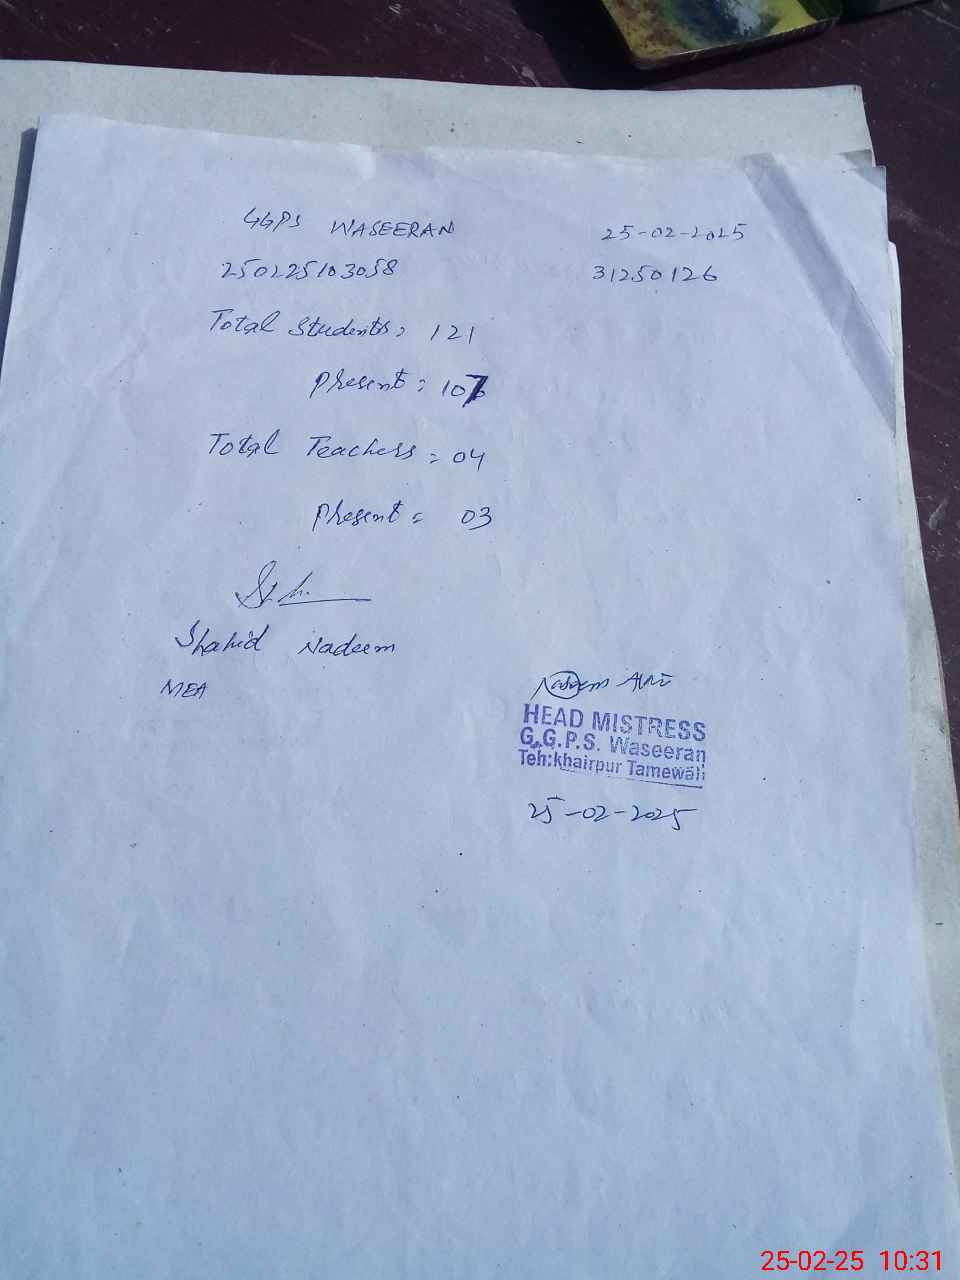 GGPS WASEERAN 25-02-2025
250225103058 31250126
Total Students = 121
Present = 107
Total Teachers = 04
Present = 03
Shahid Nadeem
MEA
Naseem Akhtar
HEAD MISTRESS
G.G.P.S. Waseeran
Teh:khairpur Tamewali
25-02-2025
25-02-25 10:31